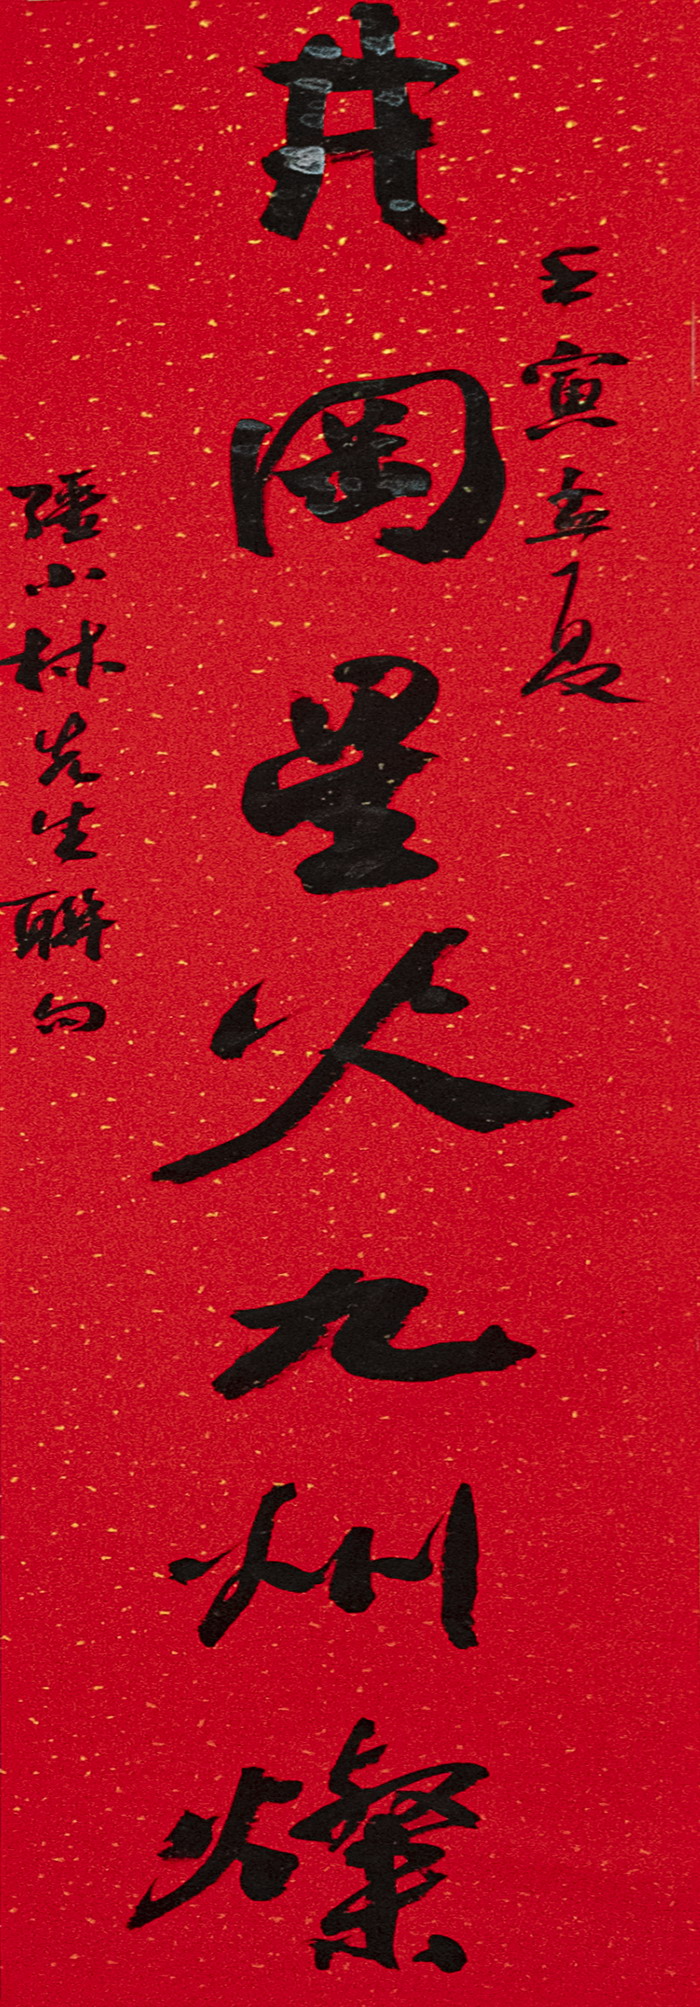 壬寅孟夏
井岡星火九州燦
小林先生聯句